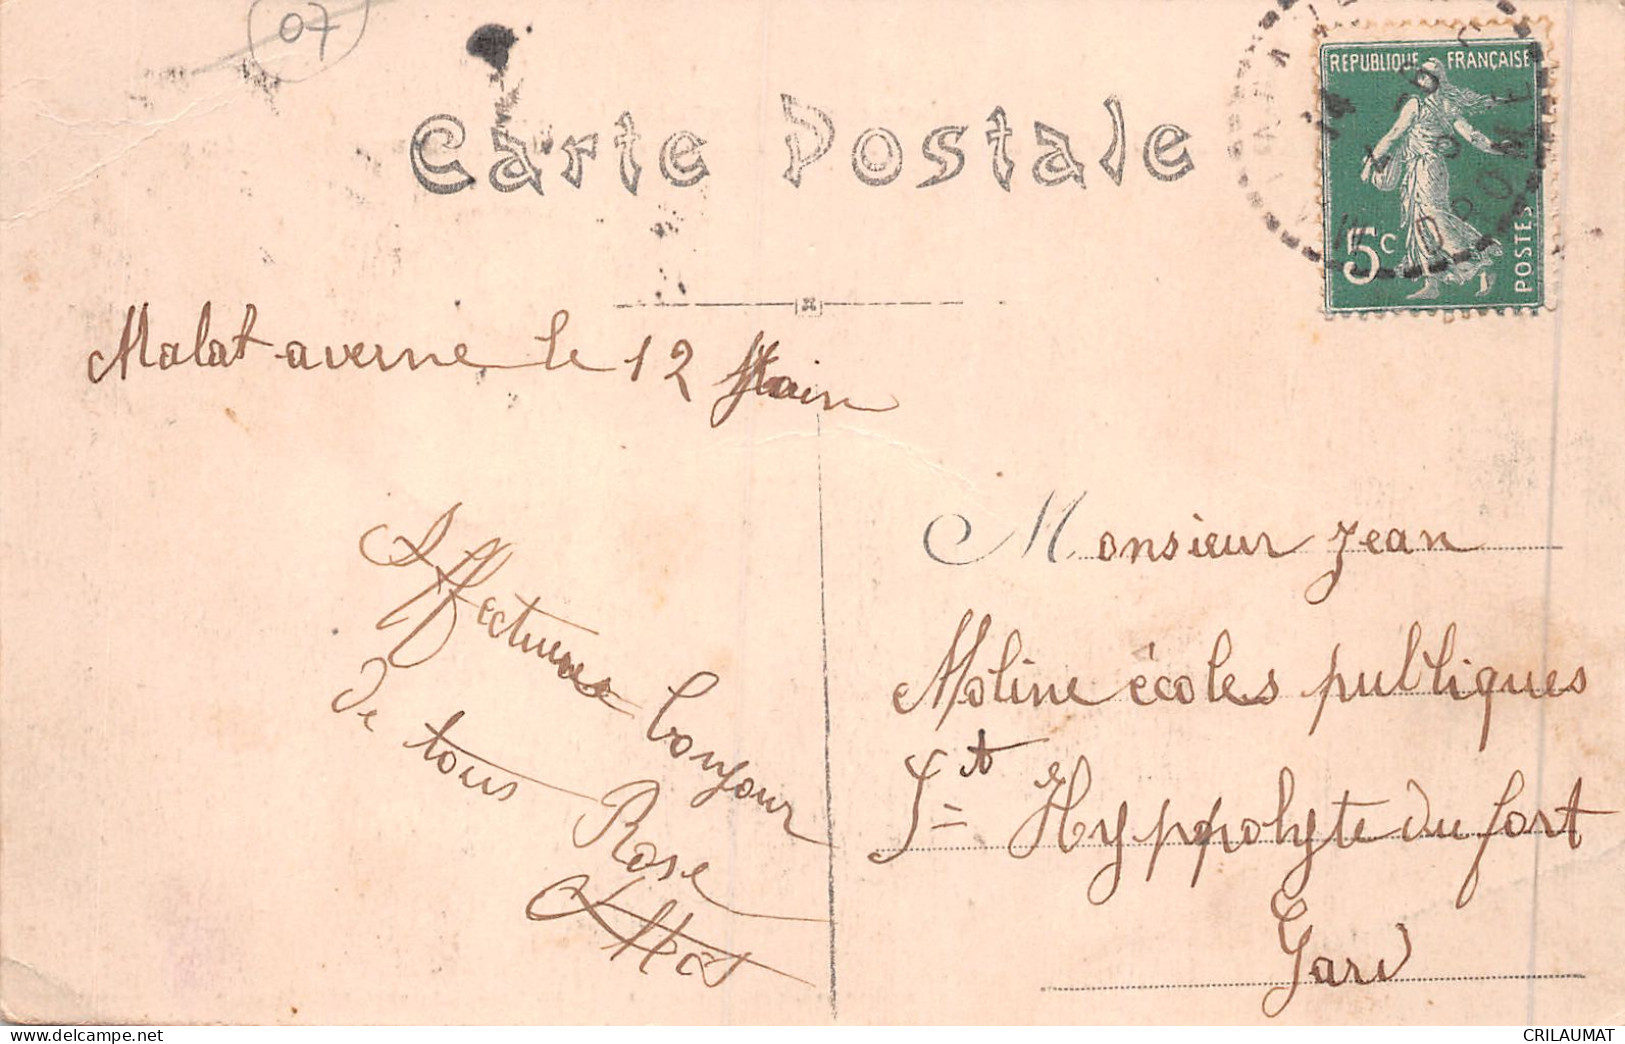 07
Carte Postale
RÉPUBLIQUE FRANÇAISE
5c
POSTES
14
DROME
Malataverne le 12
Monsieur Jean
Moline écoles publiques
St Hyppolyte du fort
Gard
Affectueux bonjour
de tous Rose
CRILAUMAT